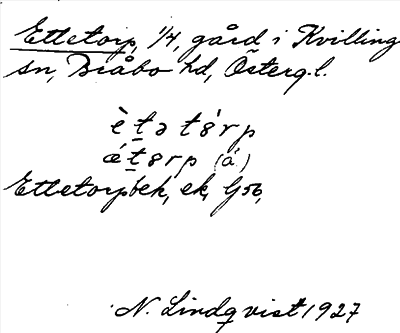 Ettetorp, 1/4, gård i Kvilling
sn, Bråbo hd, Österg.l.
è t ə t 8́ r p
ǽ t 8 r p (á)
Ettetorp bek, ek, G56,
N. Lindqvist 1927